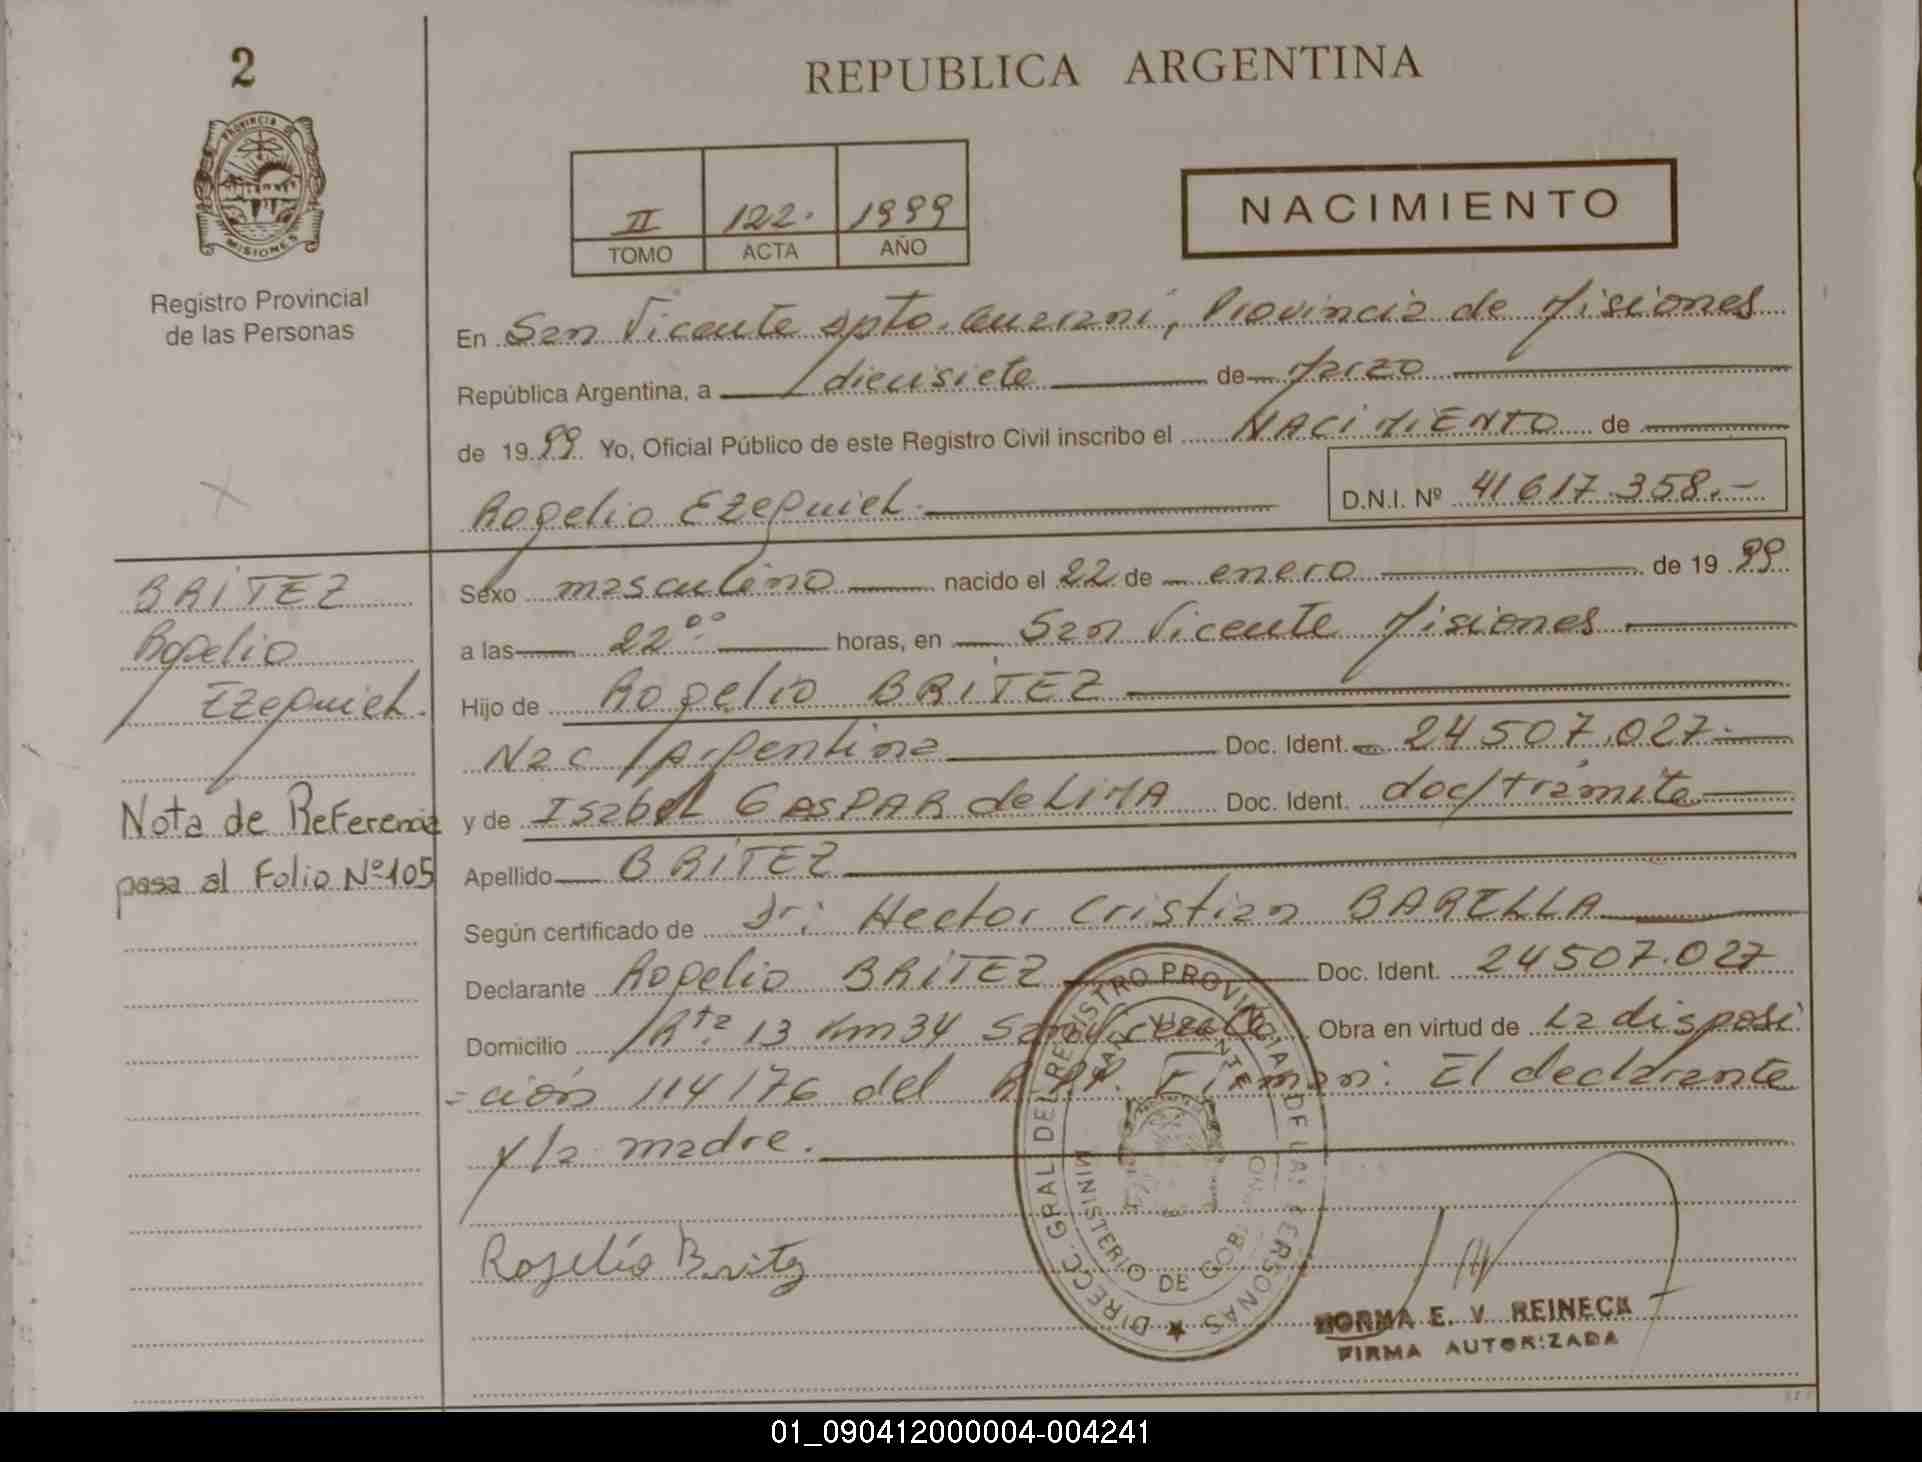 2
PROVINCIA DE
MISIONES
Registro Provincial
de las Personas
REPUBLICA ARGENTINA
II 122. 1999
TOMO ACTA AÑO
NACIMIENTO
En San Vicente Dpto. Guarani, Provincia de Misiones
República Argentina, a diecisiete de Marzo
de 1999 Yo, Oficial Público de este Registro Civil inscribo el NACIMIENTO de
Rogelio Ezequiel. D.N.I. Nº 41617.358.-
BRITEZ
Rogelio
Ezequiel.
Nota de Referencia
pasa al Folio Nº105
Sexo masculino nacido el 22 de enero de 1999
a las 22°° horas, en San Vicente Misiones
Hijo de Rogelio BRITEZ
Nac Argentina Doc. Ident. 24507.027.
y de Isabel GASPAR de LIMA Doc. Ident. doc/tramite
Apellido BRITEZ
Según certificado de Dr: Hector Cristian BARELLA
Declarante Rogelio BRITEZ Doc. Ident. 24507.027
Domicilio Rta. 13 Km 34 San Vicente. Obra en virtud de la disposi
=ción 114/76 del R.P.P. Firman: El declarante
y la madre.
Rogelio Britez
DIRECC. GRAL DEL REGISTRO PROVINCIAL DE LAS PERSONAS
SAN VICENTE
MINISTERIO DE GOB.
NORMA E. V. REINECK
FIRMA AUTORIZADA
01_090412000004-004241